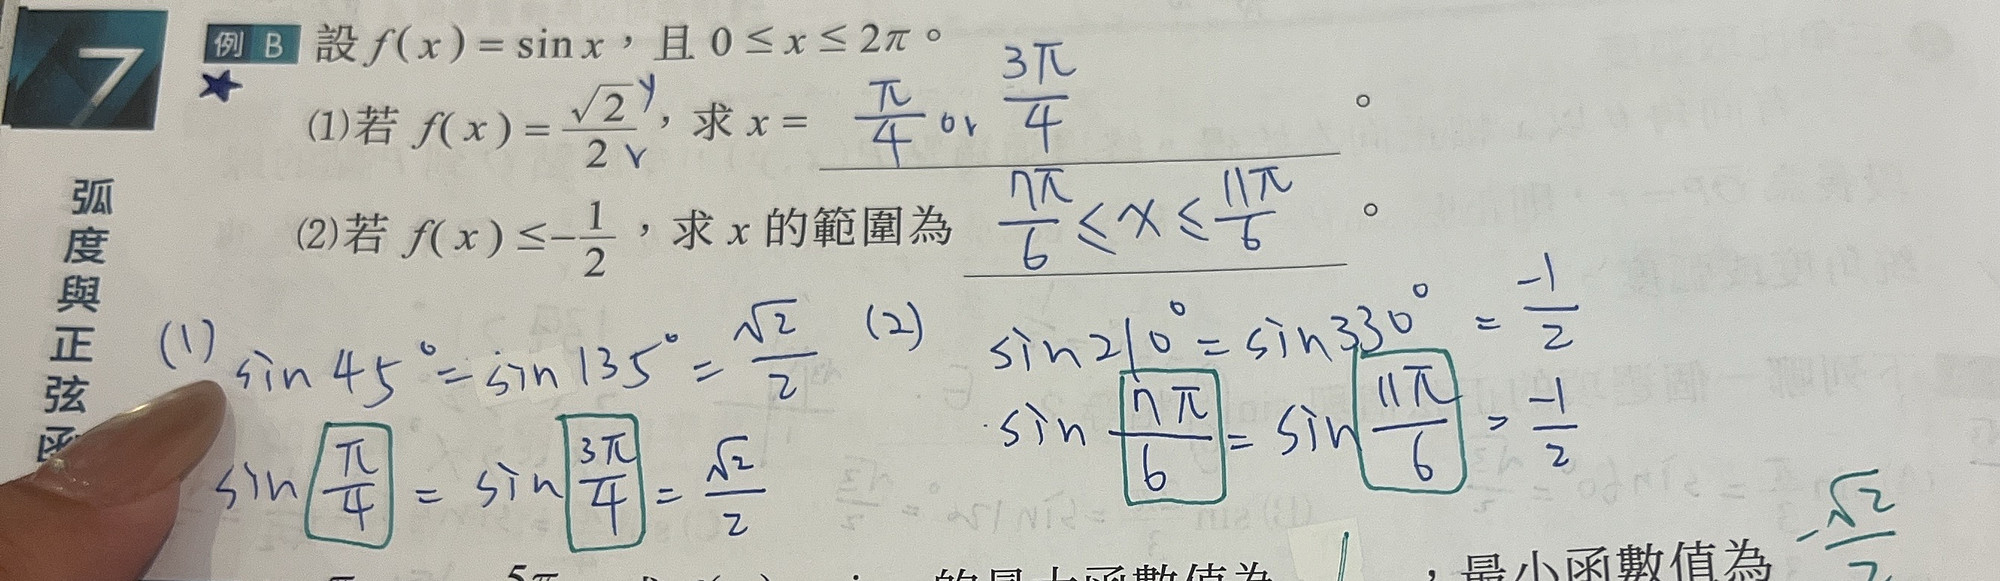 7
弧度與正弦函
例 B 設 f(x) = sin x，且 0 ≤ x ≤ 2π。
(1)若 f(x) = √2/2 y r，求 x = π/4 or 3π/4。
(2)若 f(x) ≤ -1/2，求 x 的範圍為 7π/6 ≤ x ≤ 11π/6。
(1) sin 45° = sin 135° = √2/2 (2) sin 210° = sin 330° = -1/2
sin π/4 = sin 3π/4 = √2/2 sin 7π/6 = sin 11π/6 = -1/2
的最大函數值為 1，最小函數值為 -√2/2